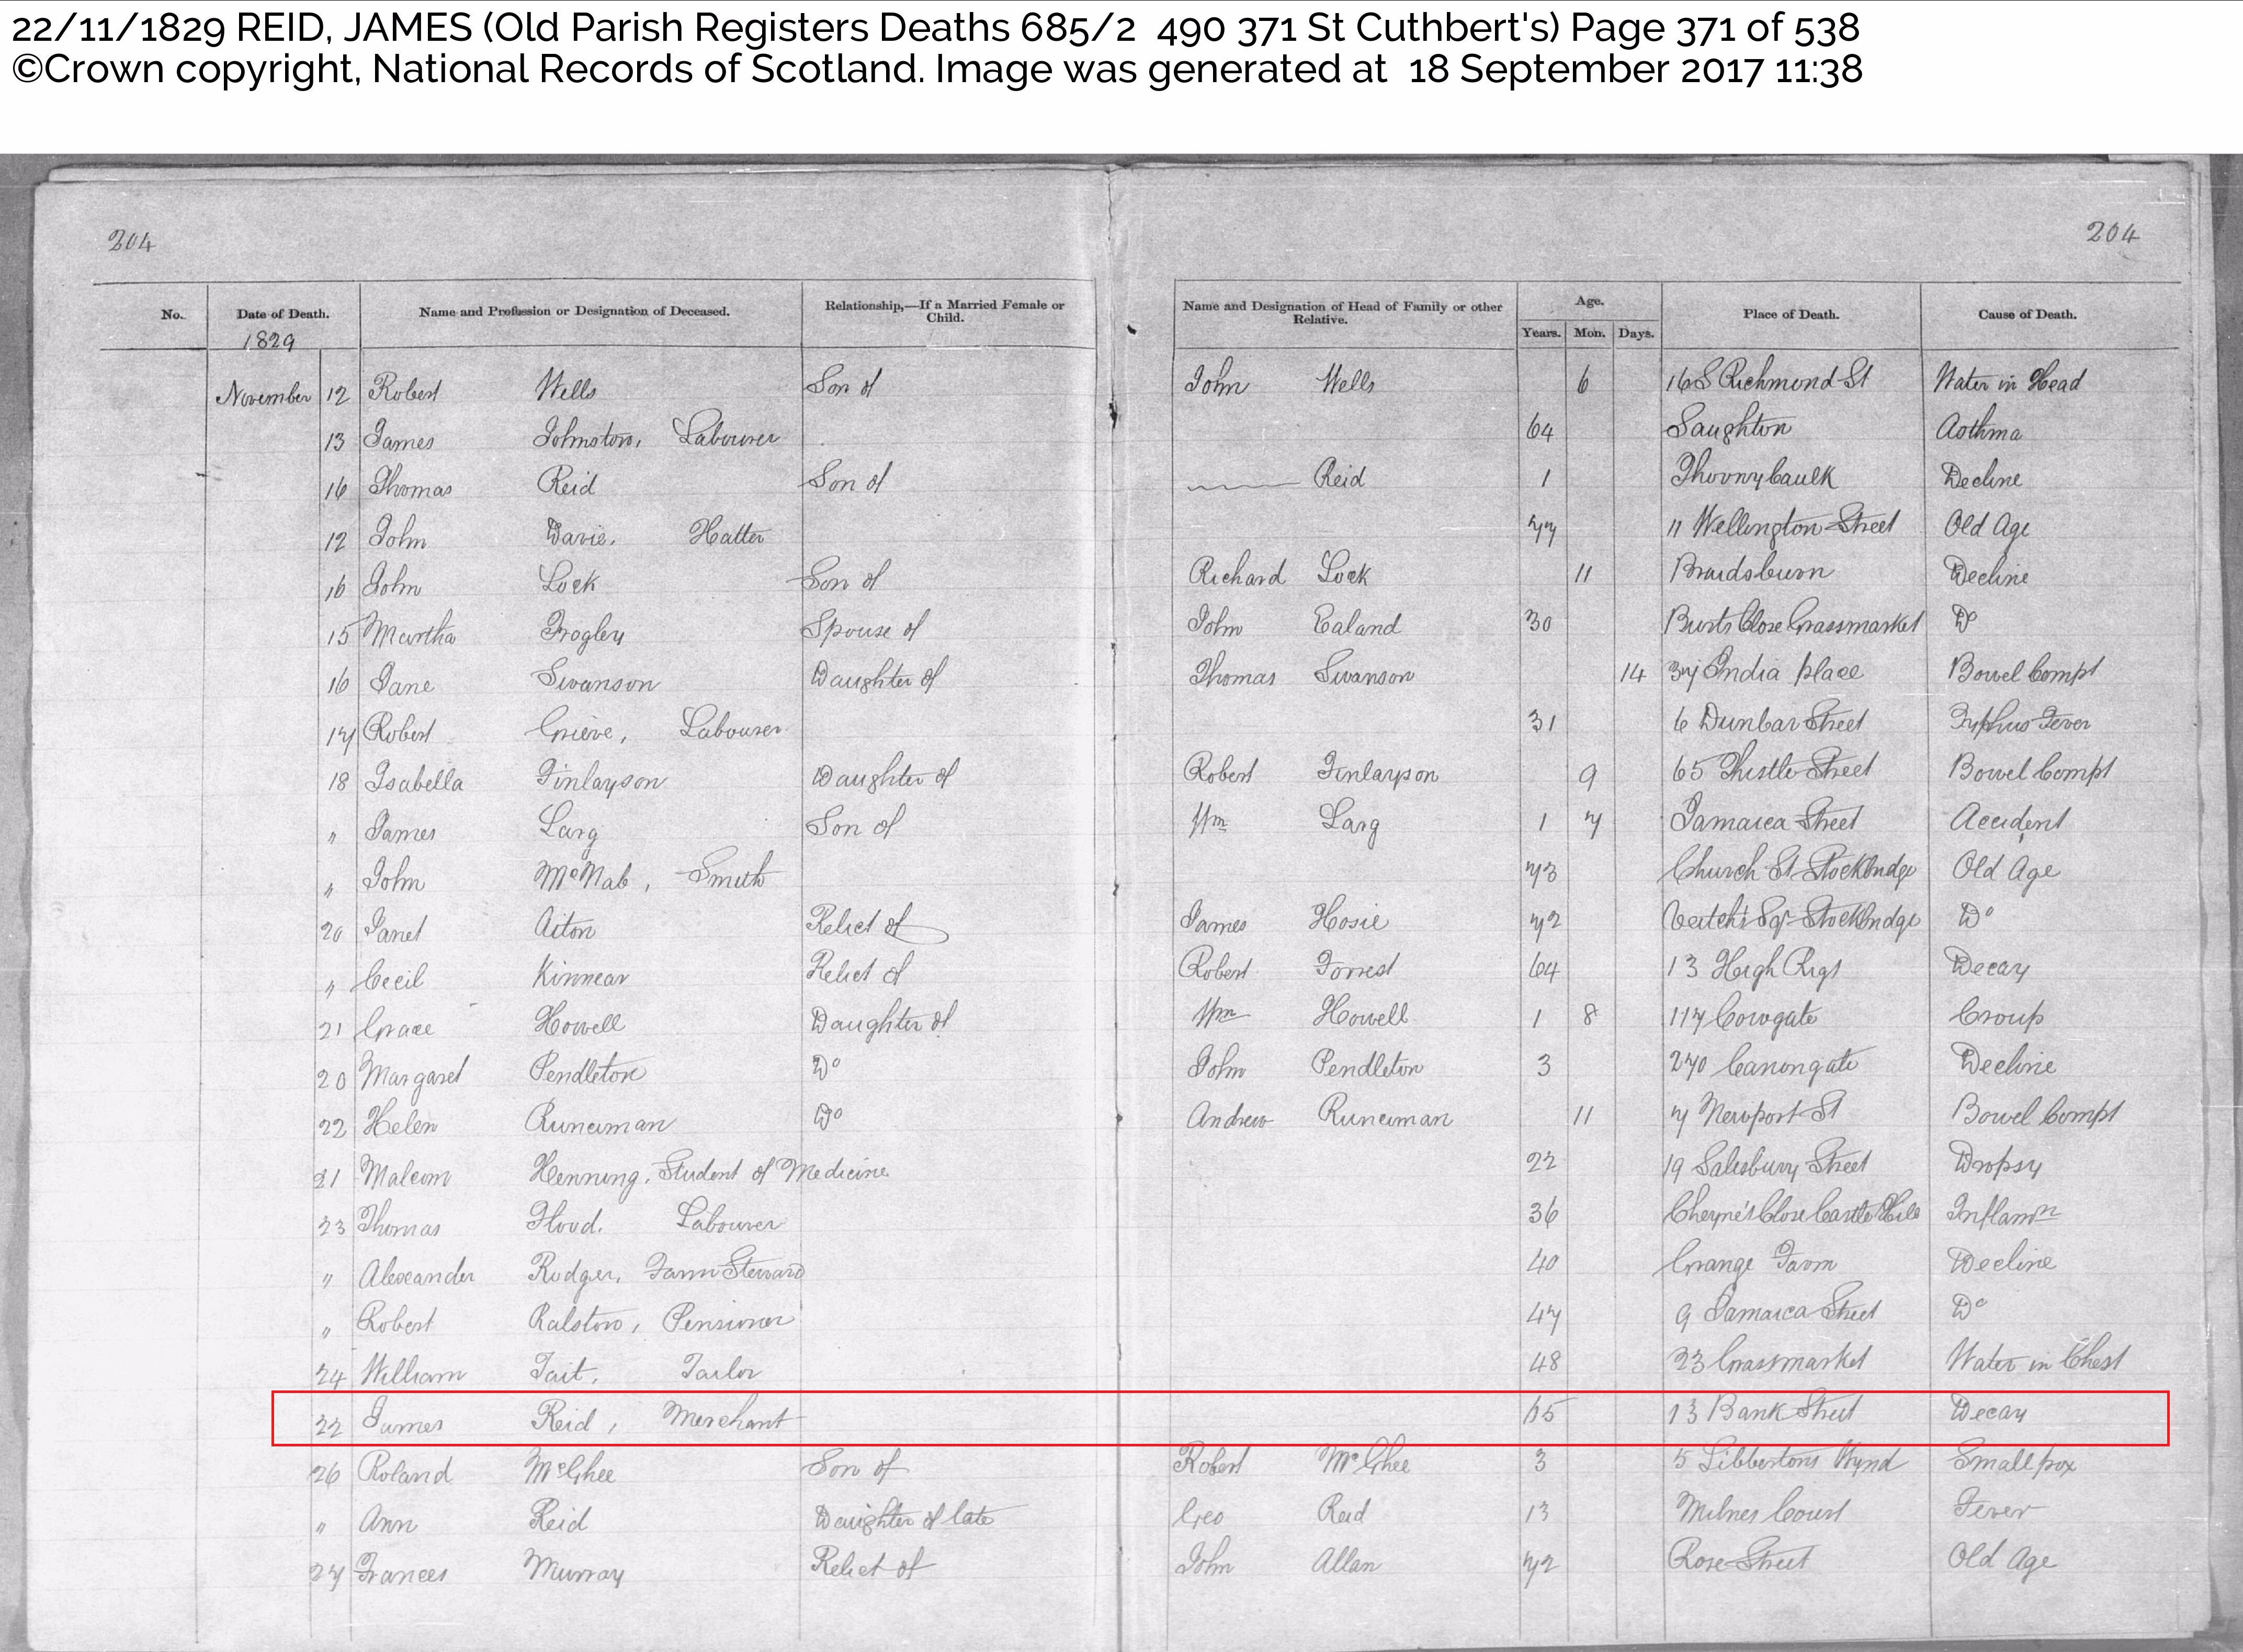 22/11/1829 REID, JAMES (Old Parish Registers Deaths 685/2 490 371 St Cuthbert's) Page 371 of 538
©Crown copyright, National Records of Scotland. Image was generated at 18 September 2017 11:38
204 204
No. Date of Death. Name and Profession or Designation of Deceased. Relationship,—If a Married Female or Child. Name and Designation of Head of Family or other Relative. Age. Years. Mon. Days. Place of Death. Cause of Death.
1829
November 12 Robert Wells Son of John Wells 6 16 S Richmond St Water in Head
13 James Johnston, Labourer 64 Saughton Asthma
16 Thomas Reid Son of Reid 1 Thornybaulk Decline
12 John Davie, Hatter 77 11 Wellington Street Old Age
16 John Lock Son of Richard Lock 11 Braidsburn Decline
15 Martha Frogley Spouse of John Ealand 30 Burts Close Grassmarket Do
16 Jane Swanson Daughter of Thomas Swanson 14 37 India place Bowel Compt
17 Robert Grieve, Labourer 31 6 Dunbar Street Typhus Fever
18 Isabella Finlayson Daughter of Robert Finlayson 9 65 Thistle Street Bowel Compt
" James Larg Son of Wm Larg 1 7 Jamaica Street Accident
" John McNab, Smith 73 Church St Stockbridge Old Age
20 Janet Aiton Relict of James Hosie 72 Veitch's Sqr Stockbridge Do
" Cecil Kinnear Relict of Robert Forrest 64 13 High Rigs Decay
21 Grace Howell Daughter of Wm Howell 1 8 117 Cowgate Croup
20 Margaret Pendleton Do John Pendleton 3 270 Canongate Decline
22 Helen Runciman Do Andrew Runciman 11 7 Newport St Bowel Compt
21 Malcom Henning, Student of Medicine 22 19 Salisbury Street Dropsy
23 Thomas Flood. Labourer 36 Cheyne's Close Castle Hill Inflamn
" Alexander Rodger, Farm Steward 40 Grange Farm Decline
" Robert Ralston, Pensioner 47 9 Jamaica Street Do
24 William Tait, Tailor 48 23 Grassmarket Water in Chest
22 James Reid, Merchant 65 13 Bank Street Decay
26 Roland McGhee Son of Robert McGhee 3 5 Libbertons Wynd Small pox
" Ann Reid Daughter of late Geo Reid 13 Milnes Court Fever
27 Frances Murray Relict of John Allan 72 Rose Street Old Age